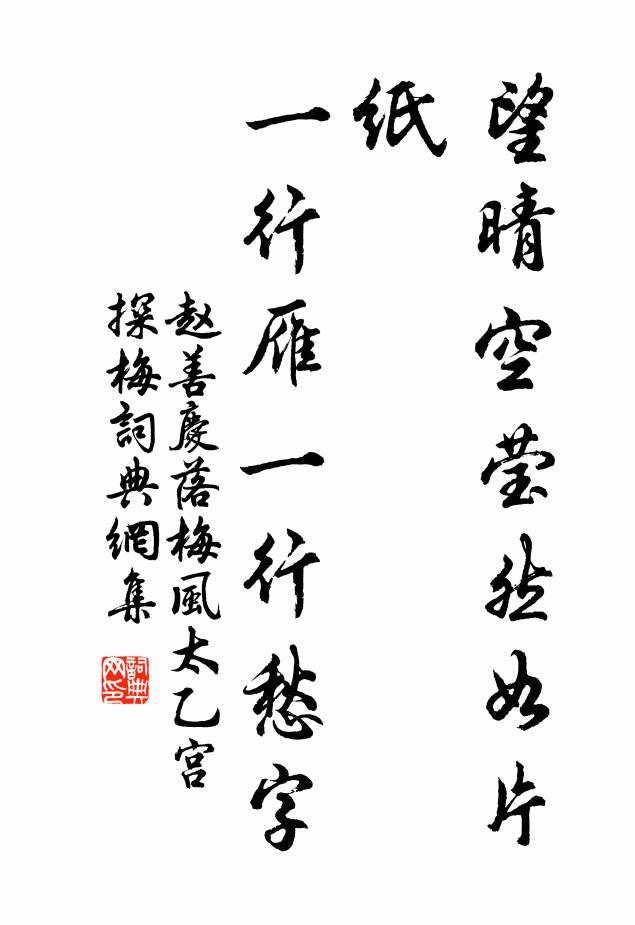 望晴空莹然如片
纸
一行雁一行愁字
赵善慶落梅風太乙宫
探梅詞典網集
詞典网印